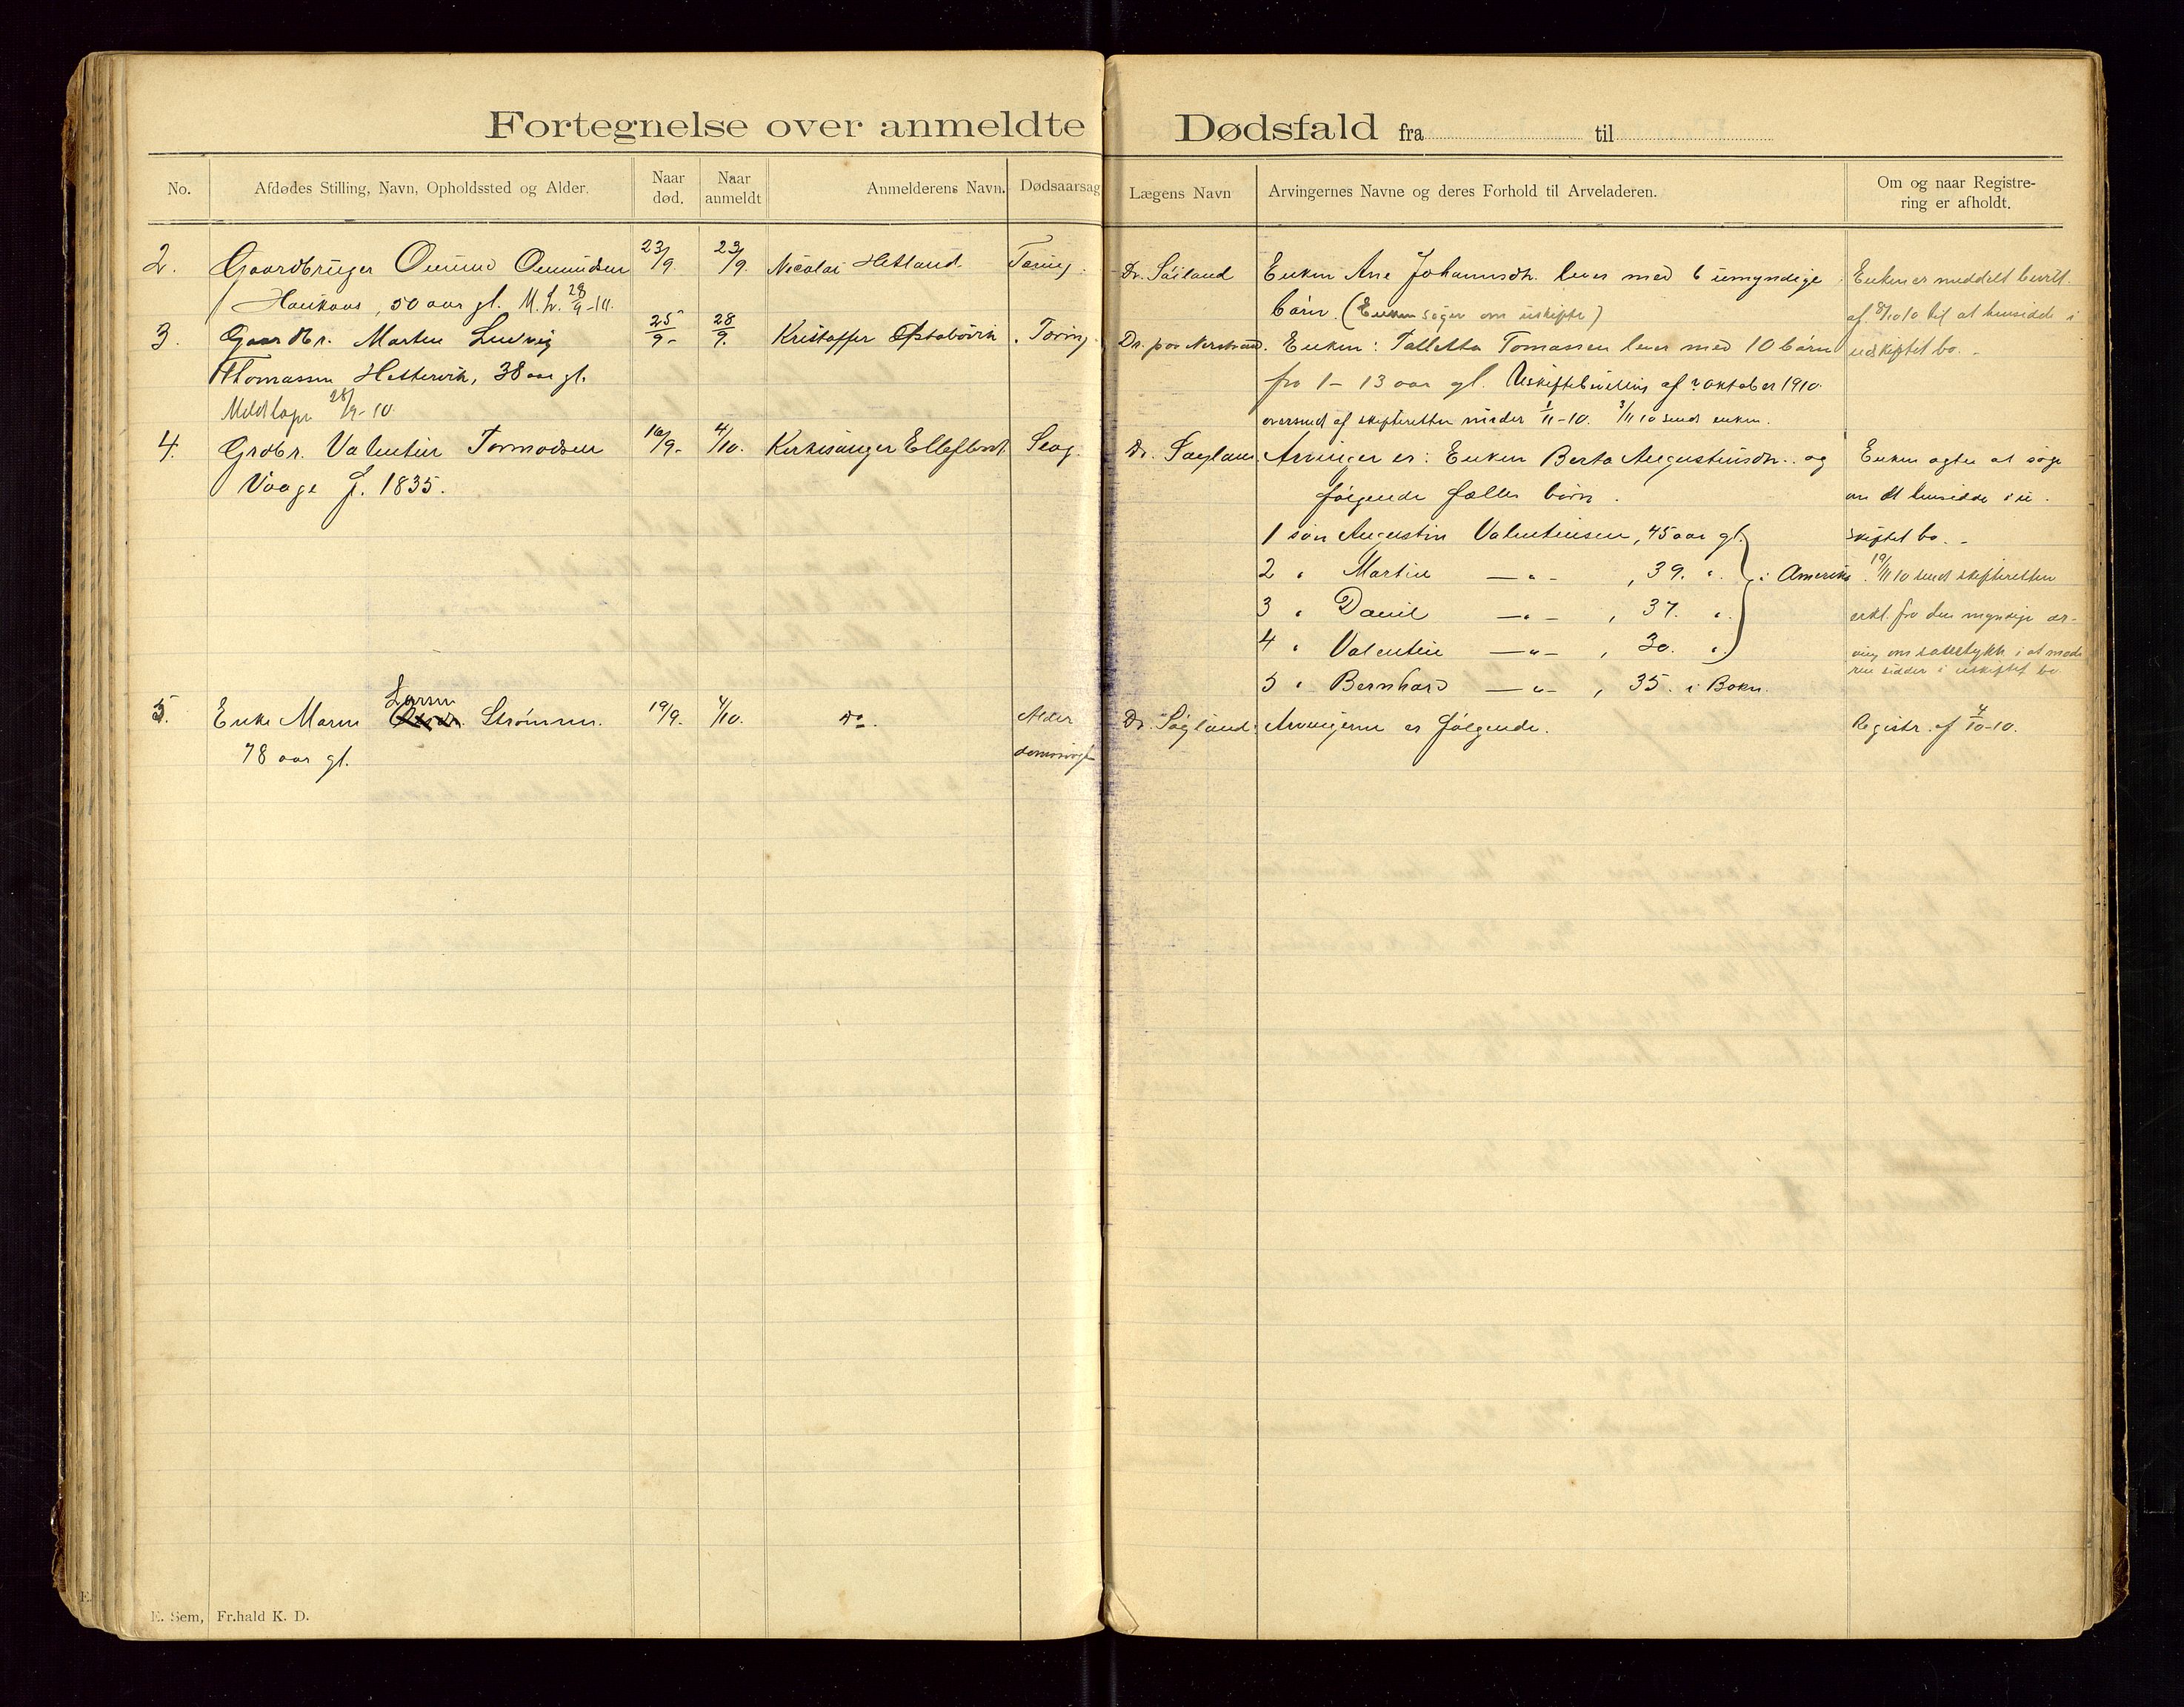 Fortegnelse over anmeldte Dødsfald fra til
No. Afdødes Stilling, Navn, Opholdssted og Alder. Naar død. Naar anmeldt Anmelderens Navn. Dødsaarsag Lægens Navn Arvingernes Navne og deres Forhold til Arveladeren. Om og naar Registrering er afholdt.
2. Gaardbruger Omund Omundsen 23/9. 23/9. Nicolai Hetland Tæring. Dr. Søiland Enken Ane Johannesdtr. lever med 6 umyndige Enken er meddelt bevil.
Haukaas, 50 aar gl. M. L. 28/9-10. børn. (Enken søger om uskifte) af 8/10 10 til at hensidde i
3. Gaardbr. Martin Ludvig 25/9- 28/9. Kristoffer Østabøvik Tæring. Dr. paa Nerstrand. Enken: Talletta Tomassen lever med 10 børn uskiftet bo. -
Thomassen Hettervik, 38 aar gl. fra 1-13 aar gl. Uskiftebevilling af ? oktober 1910
Meldt lspr 28/9-10. oversendt af skifteretten under 1/11-10. 3/11 10 sendt enken.
4. Grdbr. Valentin Tormodsen 16/9. 4/10. Kirkesanger Elleflaat Slag. Dr. Søyland Arvinger er: Enken Berta Augustinsdtr. og Enken agter at søge
Vaage f. 1835. følgende fælles børn. om at hensidde i u-
1 søn Augustin Valentinsen, 45 aar gl. skiftet bo. -
2 " Martin -"- , 39. " i Amerika. 19/11 10 sendt skifteretten
3 " Daniel -"- , 37. " erkl. fra den myndige ar-
4 " Valentin -"- , 30. " ving om samtykke i at mode
5 " Bernhard -"- , 35. i Bokn. ren sidder i uskiftet bo
Larsen
5. Enke Maren Strømmen. 19/9. 4/10. Do. Alder Dr. Søyland. Arvingerne er følgende. Registr. af 7/10-10.
78 aar gl. domssvagh
E. Sem, Fr.hald K. D.